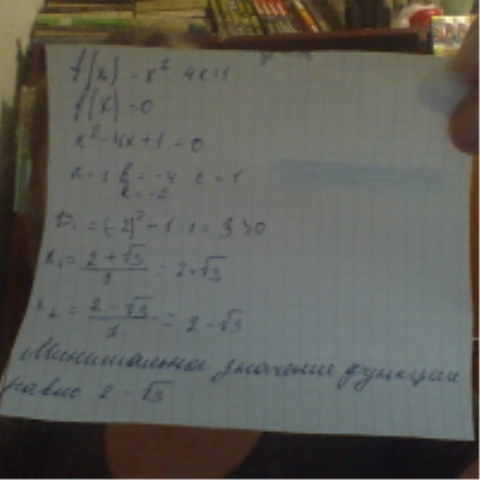 f(x) = x² - 4x+1
f(x) = 0
x² - 4x + 1 = 0
a = 1 b = -4 c = 1
k = -2
D₁ = (-2)² - 1·1 = 3 > 0
x₁ = (2 + √3)/1 = 2+√3
x₂ = (2 - √3)/1 = 2 - √3
Минимальное значение функции
равно 2 - √3